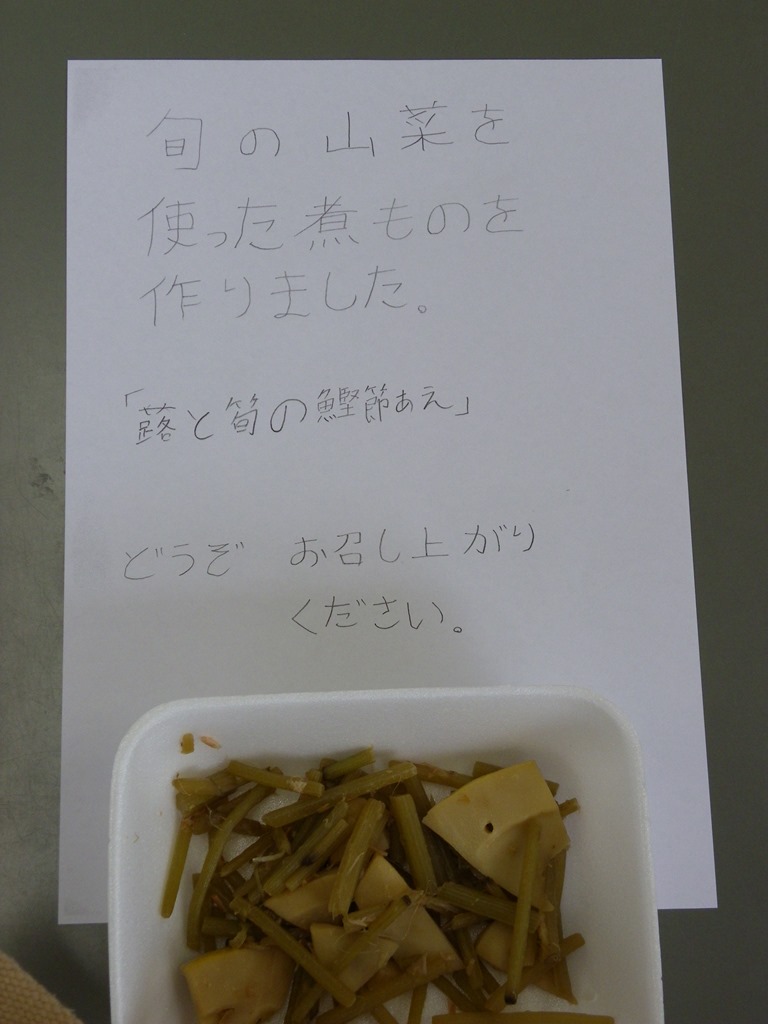 旬の山菜を
使った煮ものを
作りました。
「蕗と筍の鰹節あえ」
どうぞ お召し上がり
ください。